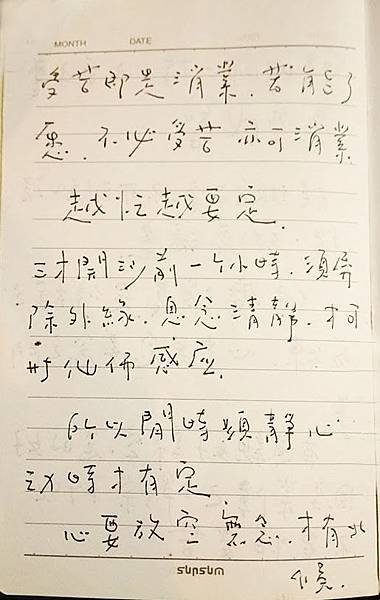 MONTH DATE
受苦即是消業.若能了
愿.不必受苦亦可消業
越忙越要定.
三才開沙前一个小時.須屏
除外緣.息念清靜.才可
與仙佛感应.
所以閒時須靜心
动時才有定
心要放空無念.才有此
sunsum